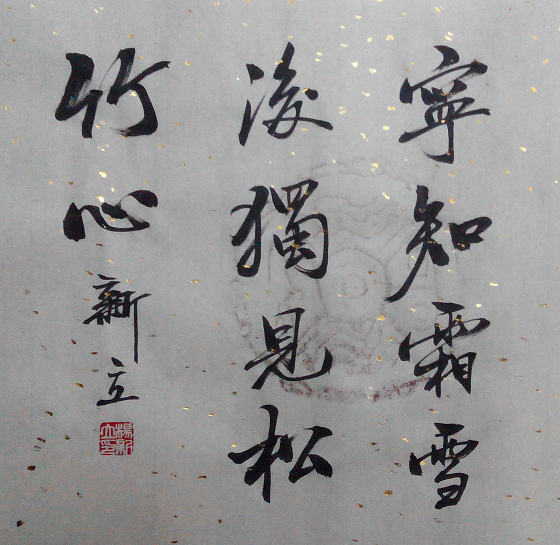 寧知霜雪
後獨見松
竹心 新立
楊新立印